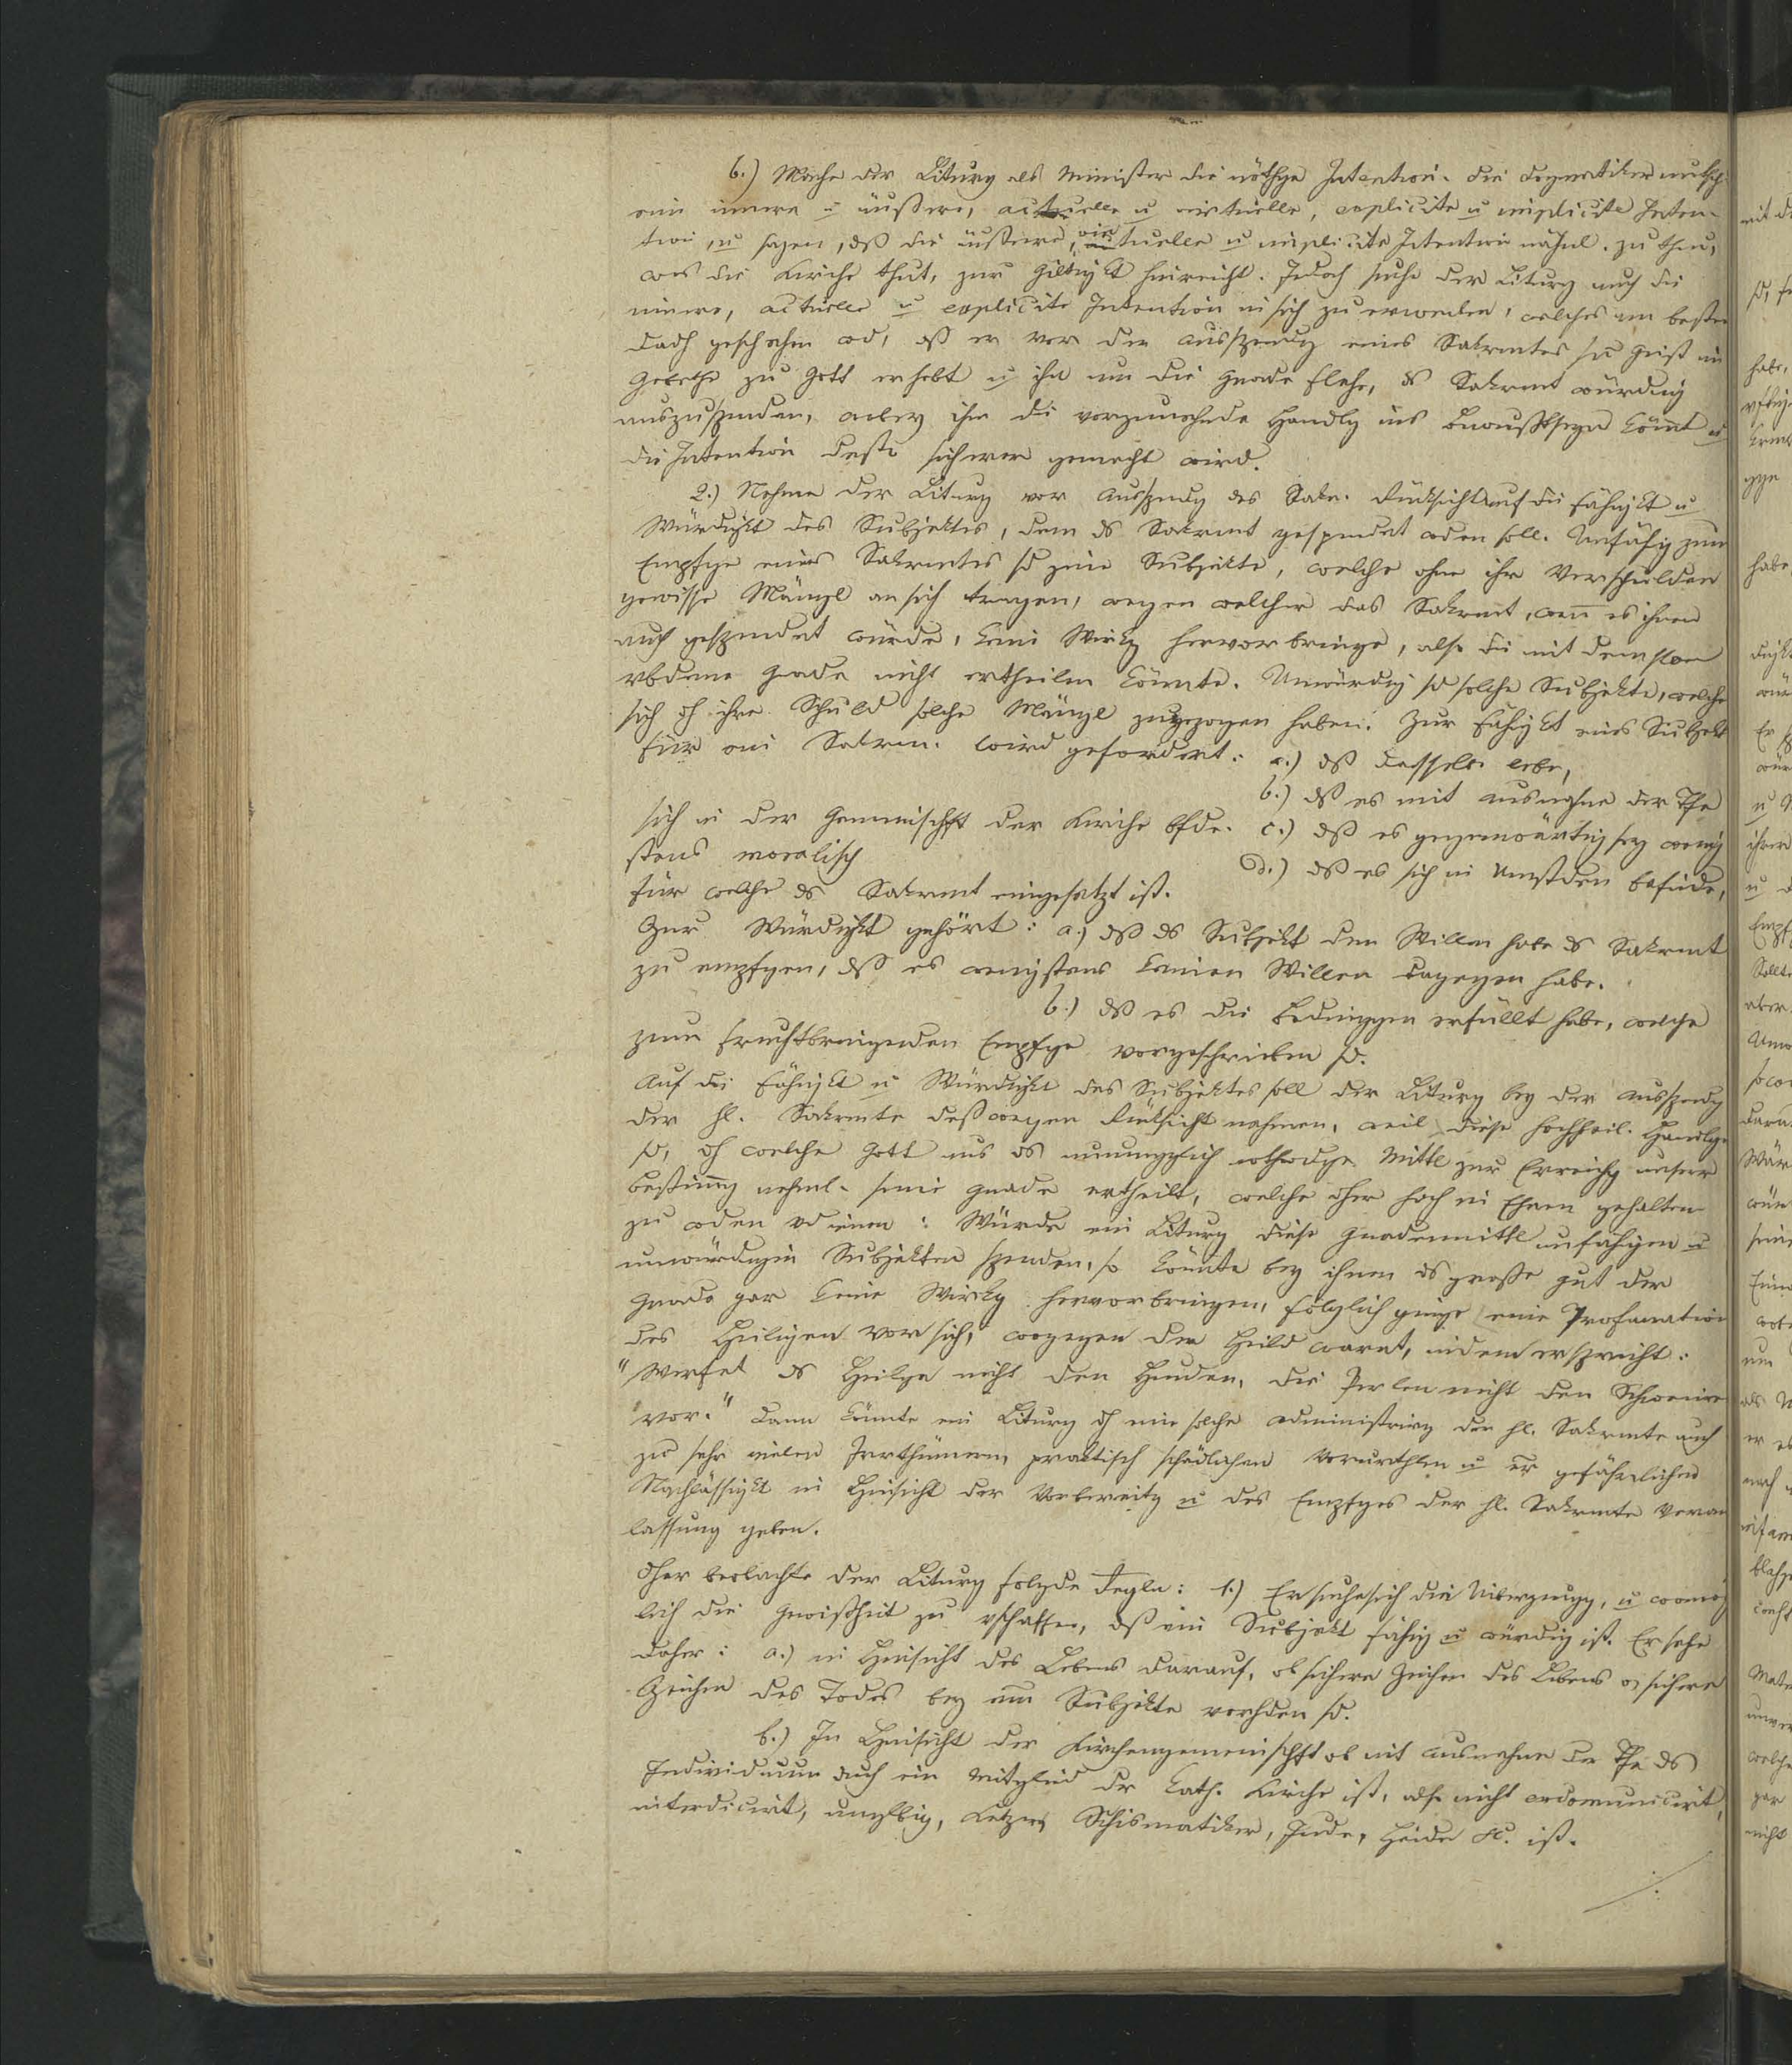 b.) Mache der Liturg als Minister die nöthge Intention. Die Dogmatiker untsch.
eine innere u äußere, actuelle u virtuelle, explicite u implicite Inten-
tion, u sagen, dß die äußere, virtuelle u implicite Intention nähml. zu thun,
was die Kirche thut, zur Giltigkt hinreicht. Jedoch suche der Liturg auch die
innere, actuelle u explicite Intention in sich zu erwecken, welches am besten
dadh geschehen wd, dß er vor der Ausspendg eines Sakrmtes sn Geist im
Gebethe zu Gott erhebt u ihn um die Gnade flehe, ds Sakrmt würdig
auszuspenden, wobey ihm die vorzunehmde Handlg ins Bewußtseyn kömt u
die Intention desto sicherer gemacht wird.
2.) Nehme der Liturg vor Ausspendg des Sakr. Rücksicht auf die Fähigkt u
Würdigkt des Subjektes, dem ds Sakrmt gespendet wden soll. Unfähig zum
Empfge eines Sakrmtes sd jene Subjekte, welche ohne ihr Verschulden
gewisse Mängl an sich tragen, wegen welcher das Sakrmt, wenn es ihnen
auch gespendet würde, keine Wirkg hervorbringe, also die mit demslben
vbdene Gnade nicht ertheilen könnte. Unwürdig sd solche Subjekte, welche
sich dh ihre Schuld solche Mängl zugezogen haben. Zur Fähigkt eines Subjekts
für ein Sakrm. wird gefordert: a.) dß dasselbe lebe,
b.) dß es mit Ausnahme der Tfe
sich in der Gemeinschft der Kirche bfde. c.) dß es gegenwärtig sey wenig
stens moralisch
d.) dß es sich in Umstden befinde,
für welche ds Sakrmt eingesetzt ist.
Zur Würdigkt gehört: a.) dß ds Subjekt den Willen habe ds Sakrmt
zu empfgen, dß es wenigstens keinen Willen dagegen habe.
b.) dß es die Bedinggen erfüllt habe, welche
zum fruchtbringenden Empfge vorgeschrieben sd.
Auf die Fähigkt u Würdigkt des Subjektes soll der Liturg bey der Ausspendg
der hl. Sakrmte deßwegen Rücksicht nehmen, weil diese hochheil. Handlgen
sd, dh welche Gott uns ds nothwdge Mittl zur Erreichg unserer
Bestimmg nehml. seine Gnade ertheilt, welche dher hoch in Ehren gehalten
zu wden vdienen: Würde ein Liturg diese Gnadenmittl unfähigen u
unwürdigen Subjekten spenden, so könnte bey ihnen ds große Gut der
Gnade gar keine Wirkg hervorbringen, folglich ginge eine Profanation
des Heiligen vor sich, wogegen der Heild warnt, indem er spricht:
"Werfet ds Heilge nicht den Hunden, die Perlen nicht den Schweinen
vor." Dann könnte ein Liturg dh eine solche Administrirg der hl. Sakrmte auch
zu sehr vielen Irrthümern, praktisch schädlichen Vorurthlen u gefährlichen
Nachlässigkt in Hinsicht der Vorbereitg u des Empfges der hl. Sakrmte Veran
lassung geben.
Dher beobachte der Liturg folgde Regln: 1.) Er suche sich die Uiberzeugg, u womög
lich die Gewißheit zu vschaffen, dß ein Subjekt fähig u würdig ist. Er sehe
daher: a.) in Hinsicht des Lebens darauf, ob sichere Zeichen des Lebens od sichere
Zeichen des Todes bey Subjekte vorhden sd.
b.) In Hinsicht der Kirchengemeinschft ob mit Ausnahme der Tfe ds
Individuum auch ein Mitglied der kath. Kirche ist, also nicht excommunicirt,
interdicirt, unglbig, Ketzer, Schismatiker, Jude, Heide &c. ist.